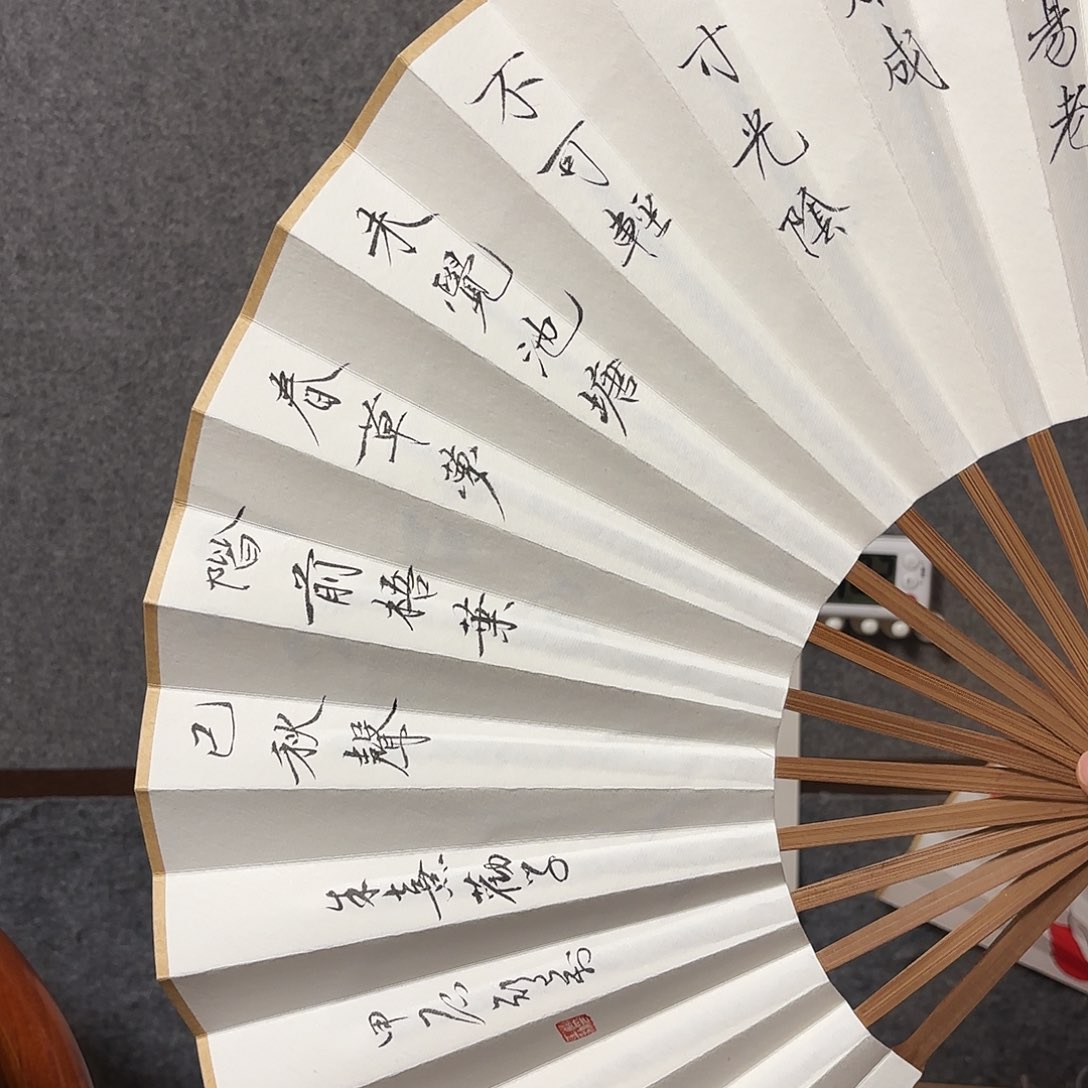 易老
成
寸光陰
不可輕
未覺池塘
春草夢
階前梧葉
已秋聲
朱熹勸學
甲辰